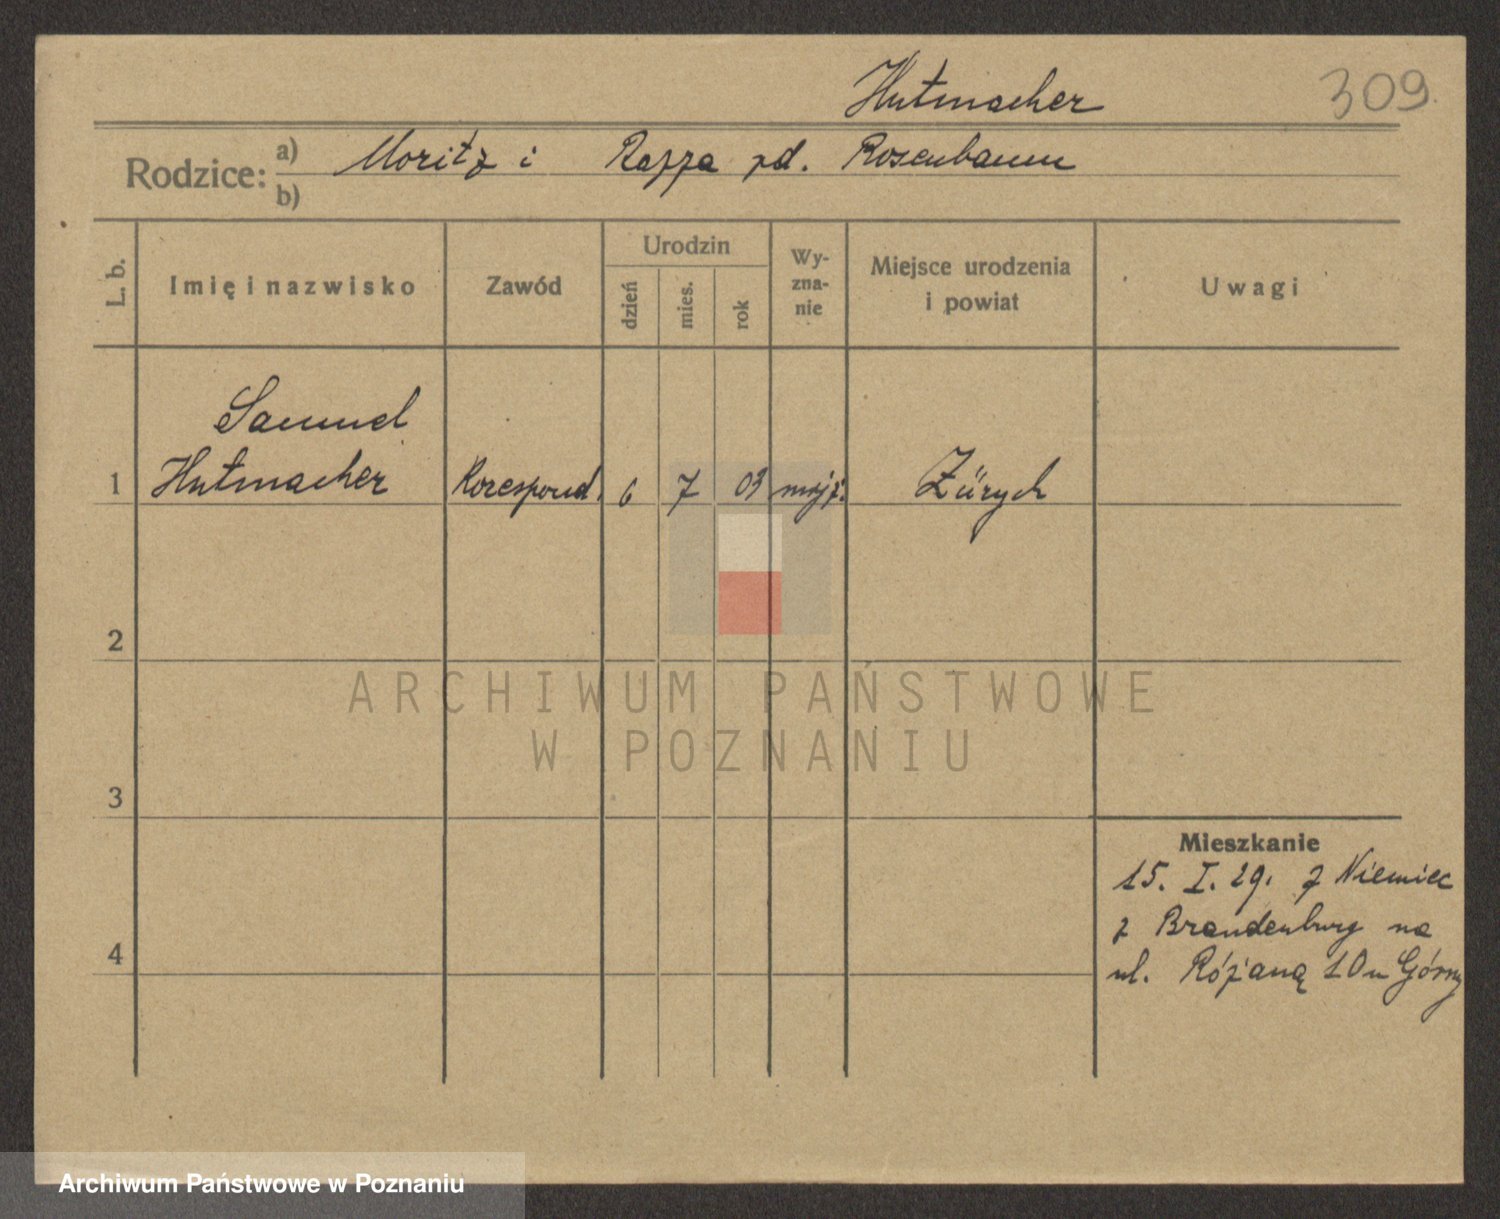 Hutmacher 309.
Rodzice: a) Moritz i Razza zd. Rosenbaum
b)
L. b.
Imię i nazwisko
Zawód
Urodzin
dzień
mies.
rok
Wy-
zna-
nie
Miejsce urodzenia
i powiat
Uwagi
Samuel
1 Hutmacher Korespond. 6 7 03 mojż. Zürych
2
ARCHIWUM PAŃSTWOWE
W POZNANIU
3
Mieszkanie
15. I. 29. z Niemiec
z Brandenburg na
4
ul. Różaną 10 u Górny
Archiwum Państwowe w Poznaniu